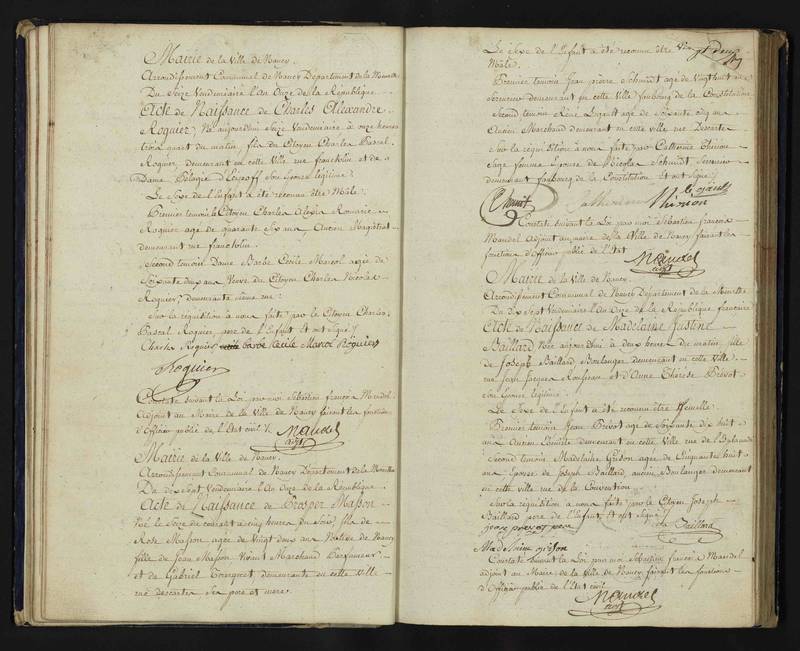 Mairie de la Ville de Nancy.
Arrondissement Communal de Nancy Département de la Meurthe
Du Seize Vendemiaire l'An Onze de la République
Acte de Naissance de Charles Alexandre
Roguier, Né aujourdhui Seize Vendemiaire à onze heures
trois quart du matin, fils du Citoyen Charles Pascal
Roguier demeurant en cette Ville rue franclin et de
Dame Pélagie son Epouse légitime.
Le Sexe de l'Enfant a été reconnu être Mâle.
Premier temoin le Citoyen Charles
Roguier age de quarante Six ans, Ancien Magistrat
demeurant rue franclin.
Second temoin Dame Barbe Cécile Marcol agée de
Soixante deux ans Veuve du Citoyen Charles Nicolas
Roguier, demeurante même rue.
Sur la réquisition à nous faite par le Citoyen Charles
Pascal Roguier pere de l'Enfant Et ont signé
Charles Roguier Barbe Cecile Marcol Roguier
Roguier
Constaté suivant la Loi par moi Sébastien françois Mandel
Adjoint au Maire de la Ville de Nancy faisant les fonctions
d'Officier public de l'Etat civil.
Mandel
adjt
Mairie de la Ville de Nancy.
Arrondissement Communal de Nancy Département de la Meurthe
Du dix Sept Vendemiaire l'An Onze de la République
Acte de Naissance de Prosper Masson
Né le Seize du courant a cinq heures du soir, fils de
Rose Masson agée de Vingt deux ans Native de Nancy
fille de Jean Masson Vivant Marchand Parfumeur,
et de Gabriel demeurante en cette Ville
rue descartes Ses pere et mere.
Le Sexe de l'Enfant a été reconnu être
Mâle.
Premier temoin Jean pierre Schmidt age de Vingt huit ans
Serrurier demeurant en cette Ville faubourg de la Constitution
Second temoin age de Soixante cinq ans
Ancien Marchand demeurant en cette ville rue Descartes
Sur la réquisition à nous faite par Catherine Thirion
Sage femme Epouse de Nicolas Schmidt Serrurier
demeurant faubourg de la Constitution Et ont signé
Catherine
Thirion
Constaté suivant la Loi par moi Sébastien françois
Mandel Adjoint au maire de la Ville de Nancy faisant les
fonctions d'Officier public de l'Etat
Mandel
adjt
Mairie de la Ville de Nancy.
Arrondissement Communal de Nancy Département de la Meurthe
Du dix Sept Vendemiaire l'An Onze de la République francaise
Acte de Naissance de Madelaine Justine
Baillard Née aujourdhui à deux heures du matin fille
de Joseph Baillard Boulanger demeurant en cette Ville
rue Jean Jacques Rousseau et d'Anne Thérèse Prévot
son Epouse légitime.
Le Sexe de l'Enfant a été reconnu être femelle.
Premier temoin Jean Prevot age de Soixante dix huit
ans Ancien demeurant en cette Ville rue de l'Esplanade
Second temoin Madelaine agée de Cinquante huit
ans Epouse de Joseph Baillard, ancien Boulanger demeurant
en cette ville rue de la Convention
Sur la réquisition à nous faite par le Citoyen Joseph
Baillard pere de l'Enfant, Et ont signé
jean prevot
Baillard
Madeleine
Constaté suivant la Loi par moi Sébastien françois Mandel
adjoint au Maire de la Ville de Nancy faisant les fonctions
d'Officier public de l'Etat civil
Mandel
adjt